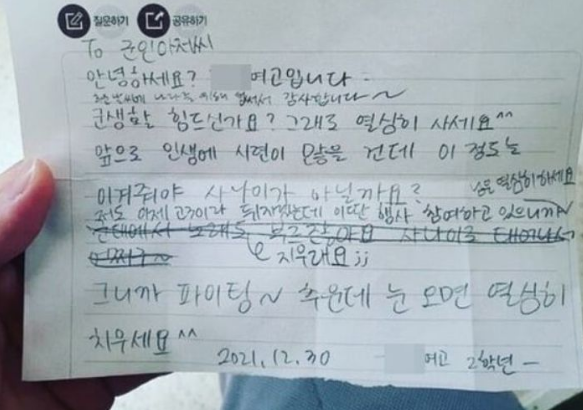 질문하기 공유하기
To 군인아저씨
안녕하세요? 여고입니다.
추운날씨에 나라를 지켜주셔서 감사합니다~
군생활 힘드신가요? 그래도 열심히 사세요^^
앞으로 인생에 시련이 많을 건데 이 정도는
이겨줘야 사나이가 아닐까요?
님은 열심히하세요
저도 이제 고3이라 뒤지겠는데 이딴 행사 참여하고 있으니까~
군대에서 노래도 부르잖아요 사나이로 태어나서
어쩌구~
지우래요;;
그니까 파이팅~ 추운데 눈 오면 열심히
치우세요^^
2021.12.30 여고 2학년 -